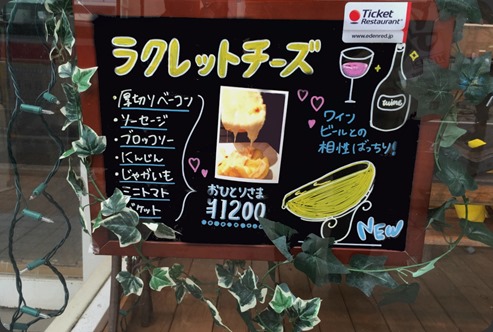 Ticket
Restaurant®
www.edenred.jp
ラクレットチーズ
・厚切りベーコン
・ソーセージ
・ブロッコリー
・にんじん
・じゃがいも
・ミニトマト
バケット
おひとりさま
¥1200
ワイン
ビールとの
相性ばっちり!
wine
NEW